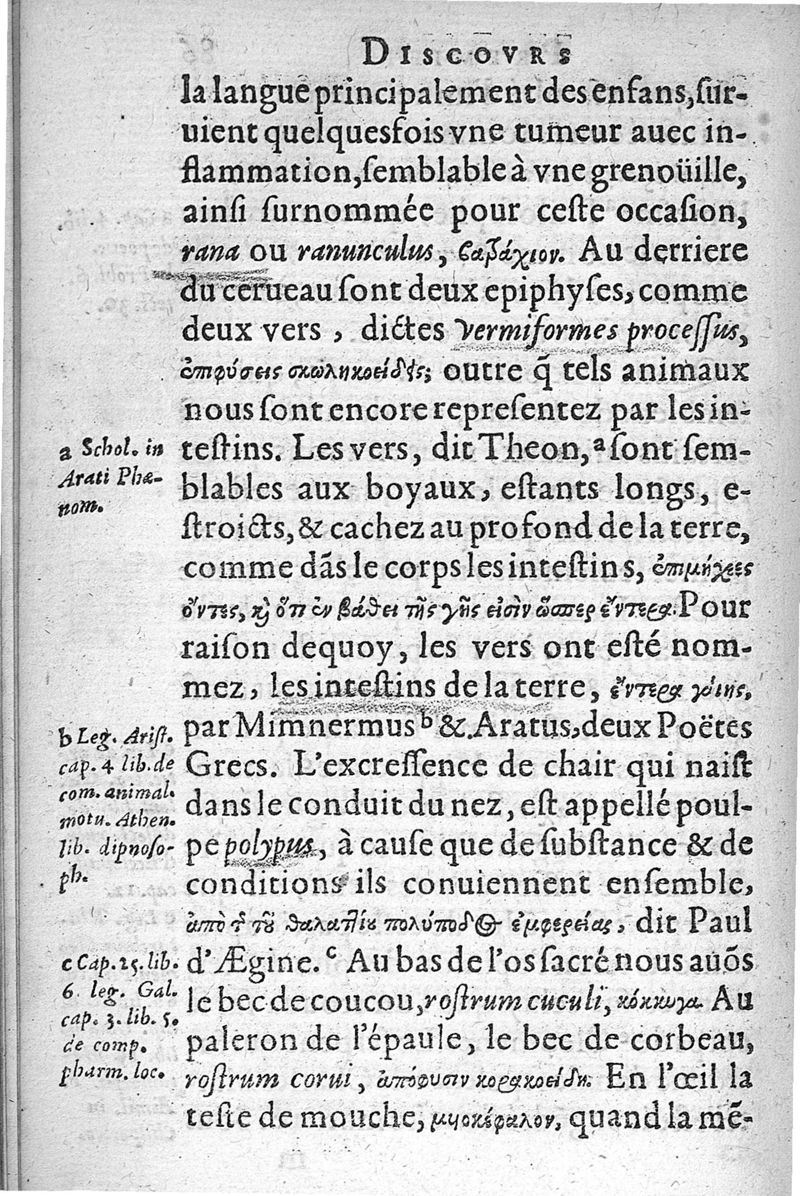 DISCOVRS
la langue principalement des enfans, ſur-
uient quelquesfois vne tumeur auec in-
flammation, ſemblable à vne grenoüille,
ainſi surnommée pour ceſte occaſion,
rana ou ranunculus, βατράχιον. Au derriere
du cerueau ſont deux epiphyſes, comme
deux vers, dictes Vermiformes proceſſus,
ἐπιφύσεις σκωληκοειδεῖς; outre q̃ tels animaux
nous ſont encore repreſentez par les in-
teſtins. Les vers, dit Theon,ᵃ ſont ſem-
blables aux boyaux, eſtants longs, e-
ſtroicts, & cachez au profond de la terre,
comme dãs le corps les inteſtins, ἐπιμήκεις
ὄντες, καὶ ὅτι ἐν βάθει τῆς γῆς εἰσὶν ὥσπερ ἔντερα. Pour
raiſon dequoy, les vers ont eſté nom-
mez, les inteſtins de la terre, ἔντερα γαίης,
par Mimnermusᵇ & Aratus, deux Poëtes
Grecs. L'excreſſence de chair qui naiſt
dans le conduit du nez, eſt appellé poul-
pe polypus, à cauſe que de ſubſtance & de
conditions ils conuiennent enſemble,
ἀπὸ τ̃ τοῦ θαλαττίου πολύποδος ἐμφερείας, dit Paul
d'Ægine.ᶜ Au bas de l'os ſacré nous auõs
le bec de coucou, roſtrum cuculi, κόκκυγα. Au
paleron de l'épaule, le bec de corbeau,
roſtrum corui, ἀπόφυσιν κορακοειδῆ. En l'œil la
teſte de mouche, μυοκέφαλον, quand la mẽ-
a Schol. in
Arati Phæ-
nom.
b Leg. Ariſt.
cap. 4 lib. de
com. animal.
motu. Athen.
lib. dipnoſo-
ph.
c Cap. 25. lib.
6. leg. Gal.
cap. 3. lib. 5.
de comp.
pharm. loc.